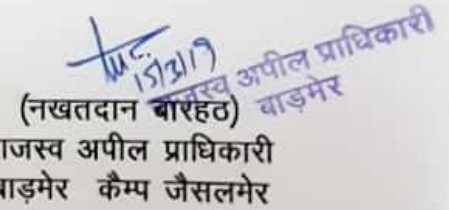 15/3/19
राजस्व अपील प्राधिकारी
बाड़मेर
(नखतदान बारहठ)
ाजस्व अपील प्राधिकारी
बाड़मेर कैम्प जैसलमेर